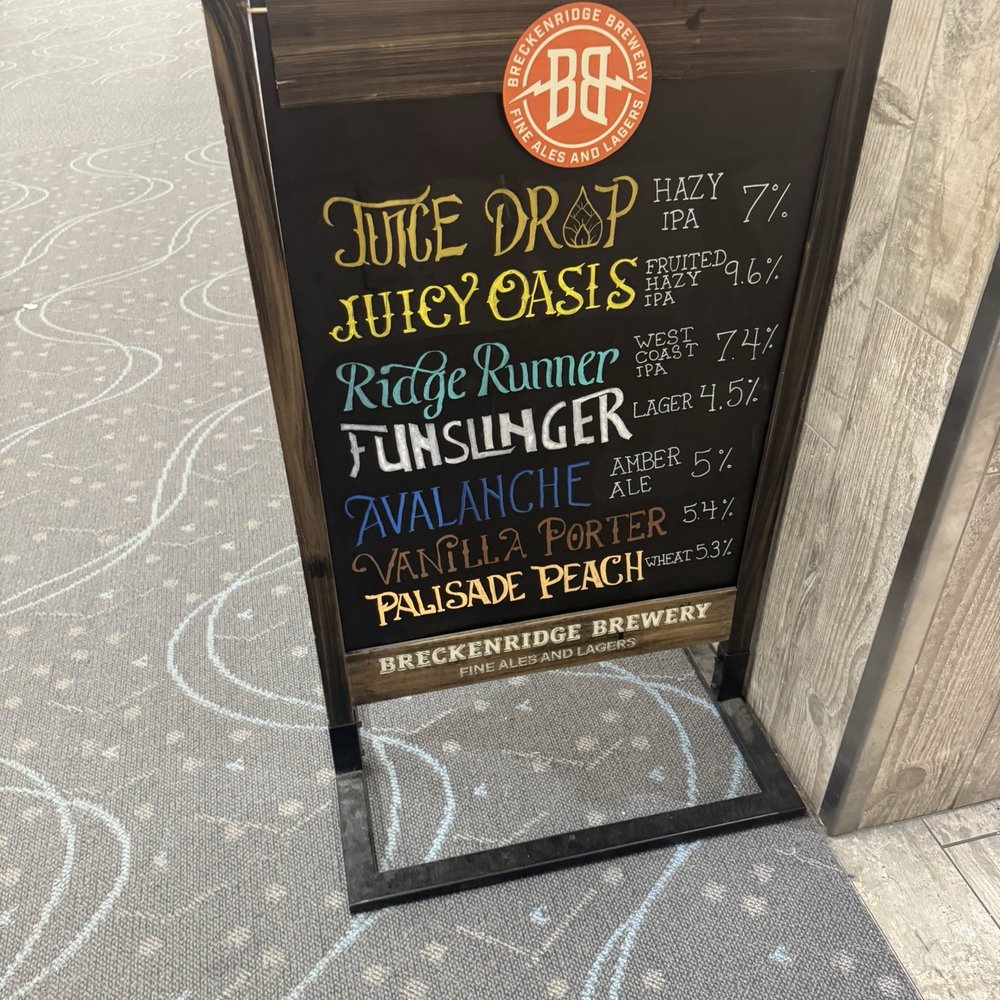 BRECKENRIDGE BREWERY
BB
FINE ALES AND LAGERS
JUICE DROP HAZY IPA 7%
JUICY OASIS FRUITED HAZY IPA 9.6%
Ridge Runner WEST COAST IPA 7.4%
FUNSLINGER LAGER 4.5%
AVALANCHE AMBER ALE 5%
VANILLA PORTER 5.4%
PALISADE PEACH WHEAT 5.3%
BRECKENRIDGE BREWERY
FINE ALES AND LAGERS